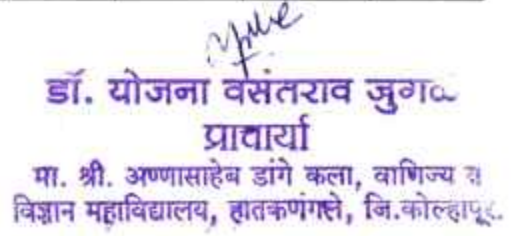 डॉ. योजना वसंतराव
प्राचार्या
मा. श्री. अण्णासाहेब डांगे कला, वाणिज्य व
विज्ञान महाविद्यालय, हातकणंगले, जि.कोल्हापूर.